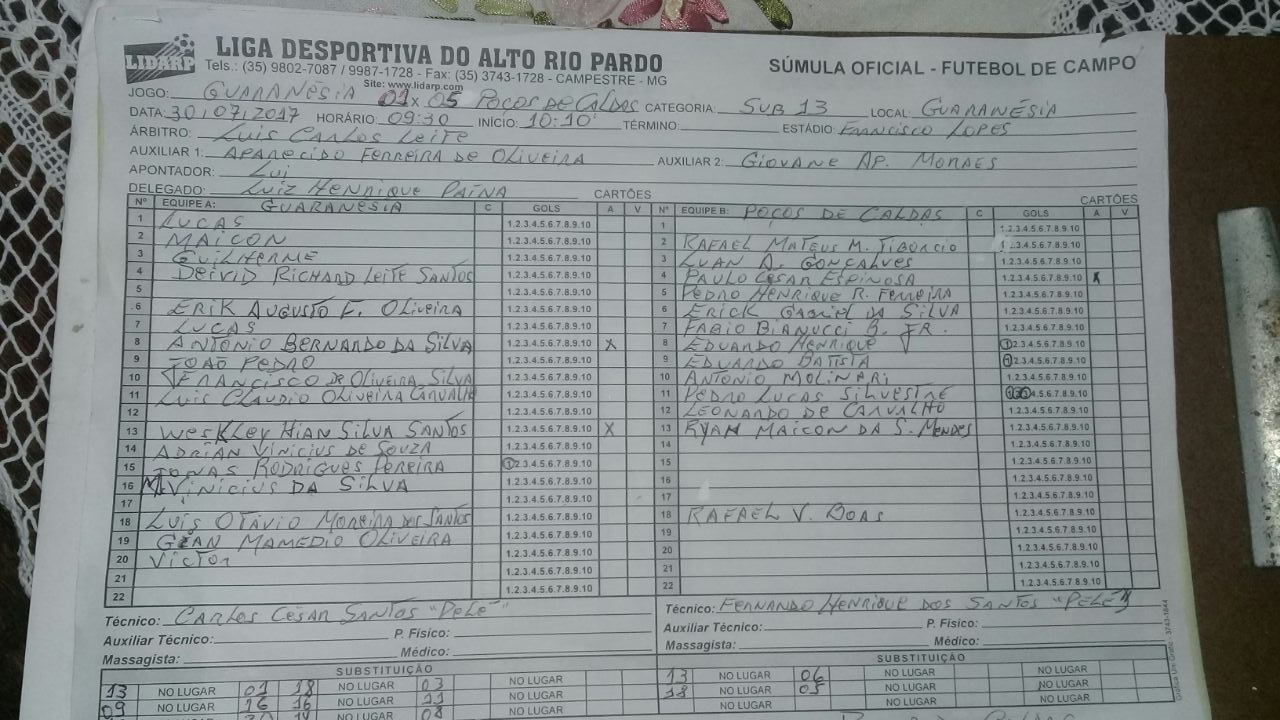 LIDARP
LIGA DESPORTIVA DO ALTO RIO PARDO
Tels.: (35) 9802-7087 / 9987-1728 - Fax: (35) 3743-1728 - CAMPESTRE - MG
Site: www.lidarp.com
SÚMULA OFICIAL - FUTEBOL DE CAMPO
JOGO: GUARANÉSIA 01 X 05 POÇOS DE CALDAS CATEGORIA: SUB 13 LOCAL: GUARANÉSIA
DATA: 30/07/2017 HORÁRIO: 09:30 INÍCIO: 10:10' TÉRMINO: ESTÁDIO: FRANCISCO LOPES
ÁRBITRO: LUIS CARLOS LEITE
AUXILIAR 1: APARECIDO FERREIRA DE OLIVEIRA AUXILIAR 2: GIOVANE AP. MORAES
APONTADOR: LUI
DELEGADO: LUIZ HENRIQUE PAINA CARTÕES CARTÕES
Nº EQUIPE A: GUARANESIA C GOLS A V Nº EQUIPE B: POÇOS DE CALDAS C GOLS A V
1 LUCAS 1.2.3.4.5.6.7.8.9.10 1 1.2.3.4.5.6.7.8.9.10
2 MAICON 1.2.3.4.5.6.7.8.9.10 2 RAFAEL MATEUS M. TIBURCIO 1.2.3.4.5.6.7.8.9.10
3 GUILHERME 1.2.3.4.5.6.7.8.9.10 3 LUAN A. GONÇALVES 1.2.3.4.5.6.7.8.9.10
4 DEIVID RICHARD LEITE SANTOS 1.2.3.4.5.6.7.8.9.10 4 PAULO CESAR ESPINOSA 1.2.3.4.5.6.7.8.9.10 X
5 1.2.3.4.5.6.7.8.9.10 5 PEDRO HENRIQUE R. FERREIRA 1.2.3.4.5.6.7.8.9.10
6 ERIK AUGUSTO F. OLIVEIRA 1.2.3.4.5.6.7.8.9.10 6 ERICK GABRIEL DA SILVA 1.2.3.4.5.6.7.8.9.10
7 LUCAS 1.2.3.4.5.6.7.8.9.10 7 FABIO BIANUCCI B. JR. 1.2.3.4.5.6.7.8.9.10
8 ANTÔNIO BERNARDO DA SILVA 1.2.3.4.5.6.7.8.9.10 X 8 EDUARDO HENRIQUE 1.2.3.4.5.6.7.8.9.10
9 JOAÕ PEDRO 1.2.3.4.5.6.7.8.9.10 9 EDUARDO BATISTA 1.2.3.4.5.6.7.8.9.10
10 FRANCISCO DE OLIVEIRA SILVA 1.2.3.4.5.6.7.8.9.10 10 ANTONIO MOLINARI 1.2.3.4.5.6.7.8.9.10
11 LUIS CLAUDIO OLIVEIRA CARVALHO 1.2.3.4.5.6.7.8.9.10 11 PEDRO LUCAS SILVESTRE 1.2.3.4.5.6.7.8.9.10
12 1.2.3.4.5.6.7.8.9.10 12 LEONARDO DE CARVALHO 1.2.3.4.5.6.7.8.9.10
13 WESKLEY HIAN SILVA SANTOS 1.2.3.4.5.6.7.8.9.10 X 13 RYAN MAICON DA S. MENDES 1.2.3.4.5.6.7.8.9.10
14 ADRIAN VINICIUS DE SOUZA 1.2.3.4.5.6.7.8.9.10 14 1.2.3.4.5.6.7.8.9.10
15 JONAS RODRIGUES PEREIRA 1.2.3.4.5.6.7.8.9.10 15 1.2.3.4.5.6.7.8.9.10
16 M. VINICIUS DA SILVA 1.2.3.4.5.6.7.8.9.10 16 1.2.3.4.5.6.7.8.9.10
17 1.2.3.4.5.6.7.8.9.10 17 1.2.3.4.5.6.7.8.9.10
18 LUIS OTÁVIO MOREIRA DOS SANTOS 1.2.3.4.5.6.7.8.9.10 18 RAFAEL V. BOAS 1.2.3.4.5.6.7.8.9.10
19 GIAN MAMEDIO OLIVEIRA 1.2.3.4.5.6.7.8.9.10 19 1.2.3.4.5.6.7.8.9.10
20 VICTOR 1.2.3.4.5.6.7.8.9.10 20 1.2.3.4.5.6.7.8.9.10
21 1.2.3.4.5.6.7.8.9.10 21 1.2.3.4.5.6.7.8.9.10
22 1.2.3.4.5.6.7.8.9.10 22 1.2.3.4.5.6.7.8.9.10
Técnico: CARLOS CESAR SANTOS "PELÉ" Técnico: FERNANDO HENRIQUE DOS SANTOS "PELÉ"
Auxiliar Técnico: P. Físico: Auxiliar Técnico: P. Físico:
Massagista: Médico: Massagista: Médico:
SUBSTITUIÇÃO SUBSTITUIÇÃO
13 NO LUGAR 01 18 NO LUGAR 03 NO LUGAR 13 NO LUGAR 06 NO LUGAR NO LUGAR
09 NO LUGAR 16 16 NO LUGAR 11 NO LUGAR 18 NO LUGAR 05 NO LUGAR NO LUGAR
NO LUGAR NO LUGAR 08 NO LUGAR NO LUGAR NO LUGAR NO LUGAR